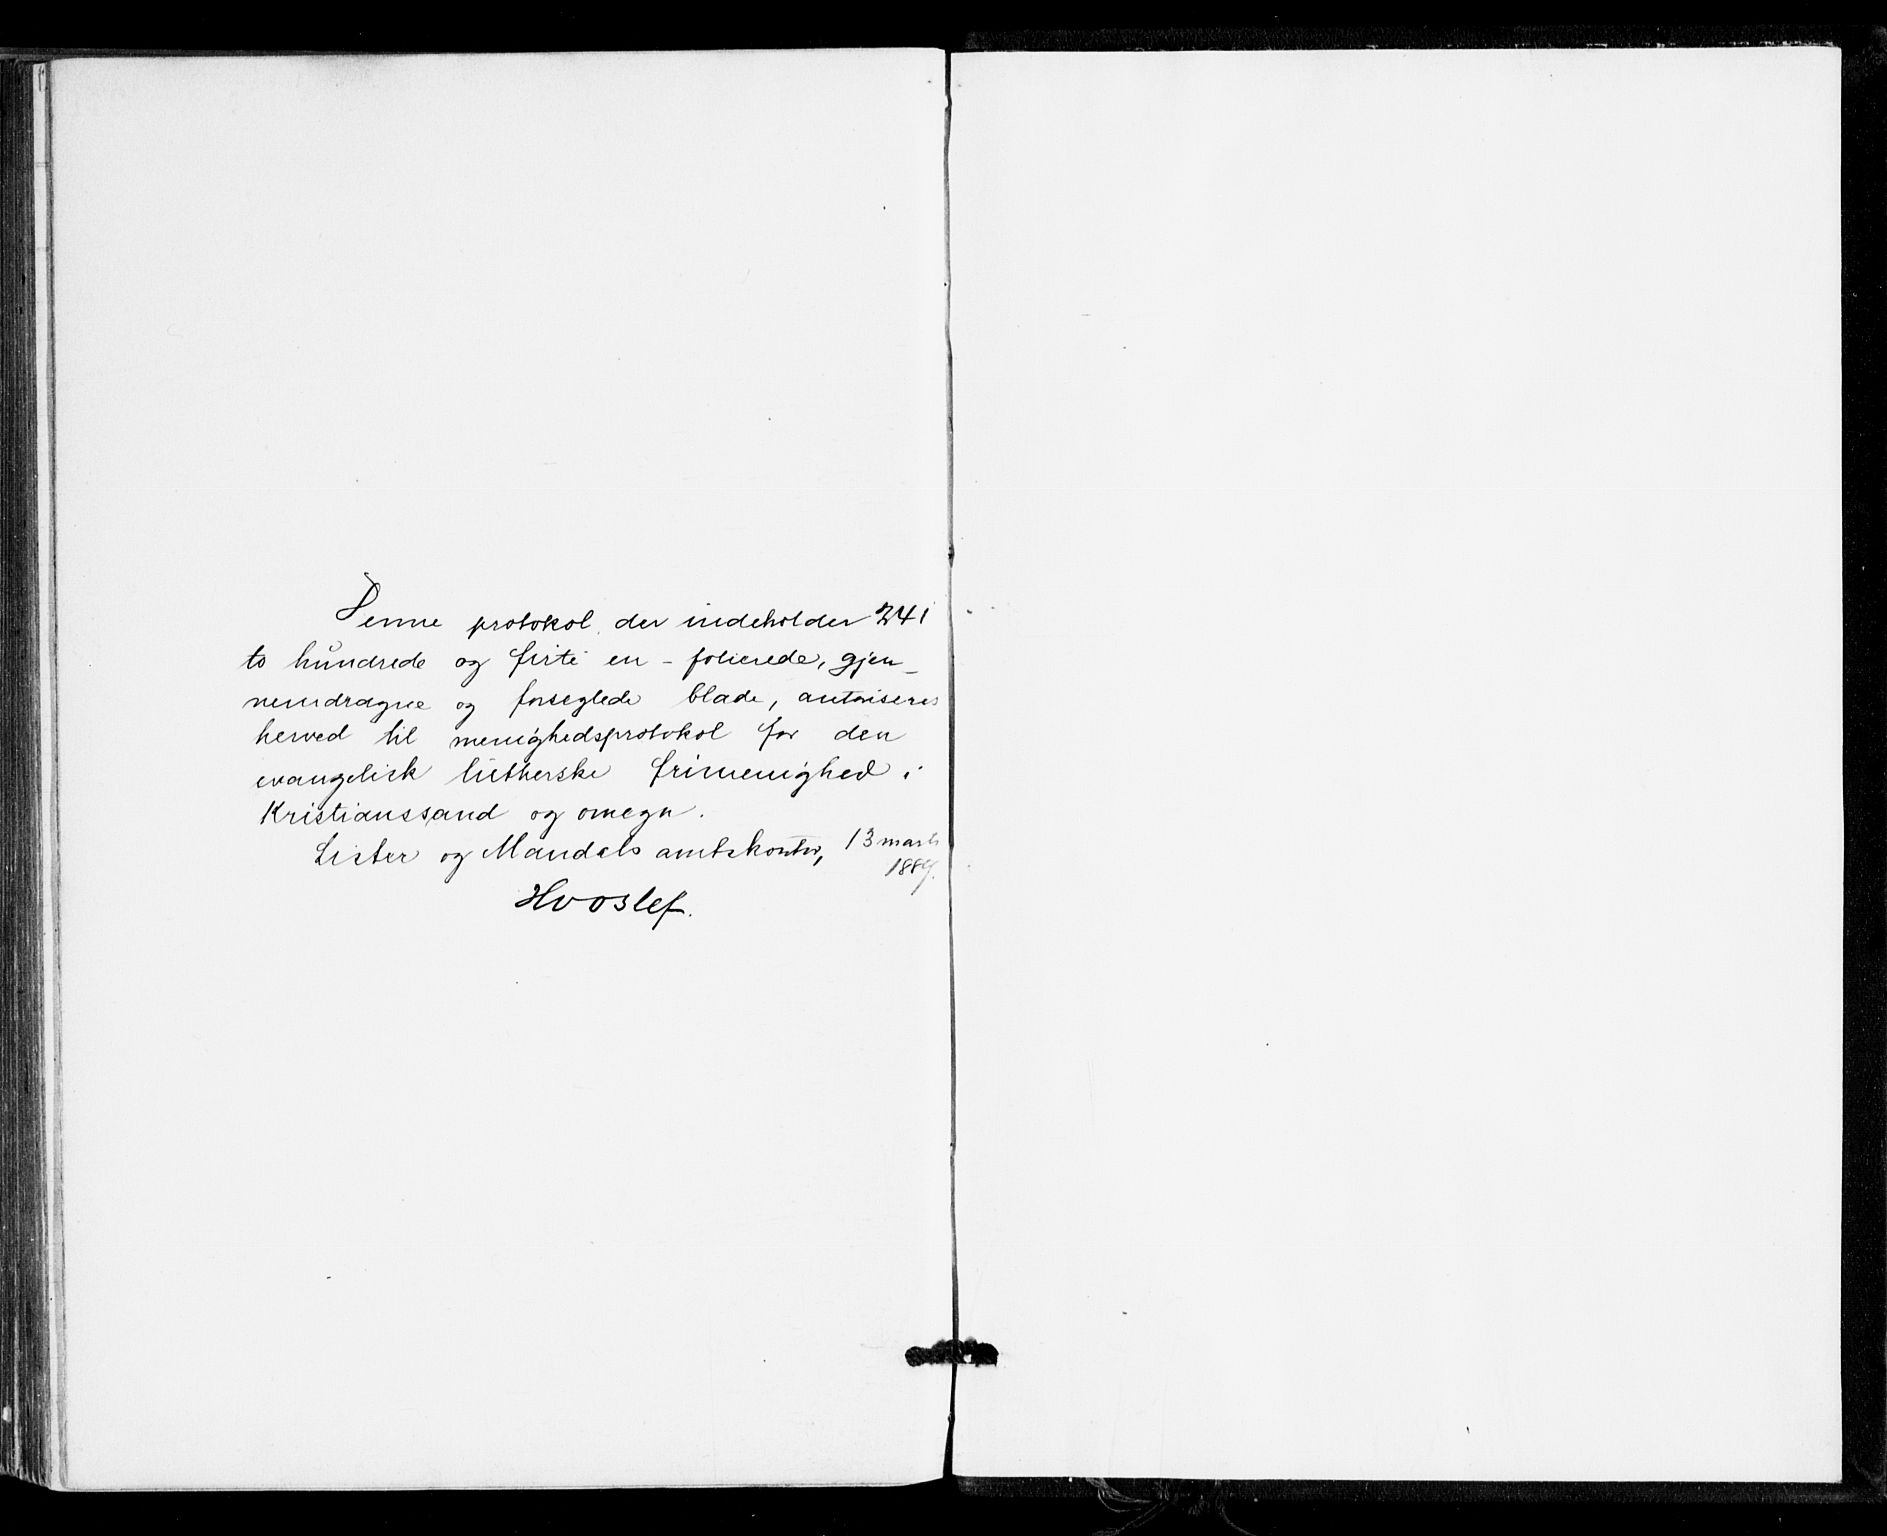 Denne protokol, der indeholder 241
to hundrede og firti en - folierede, gjen-
nemdragne og forseglede blade, autoriseres
herved til menighedsprotokol for den
evangelisk lutherske frimenighed i
Kristianssand og omegn.
Lister og Mandals amtskontor, 13 marts
1889.
Hvoslef.